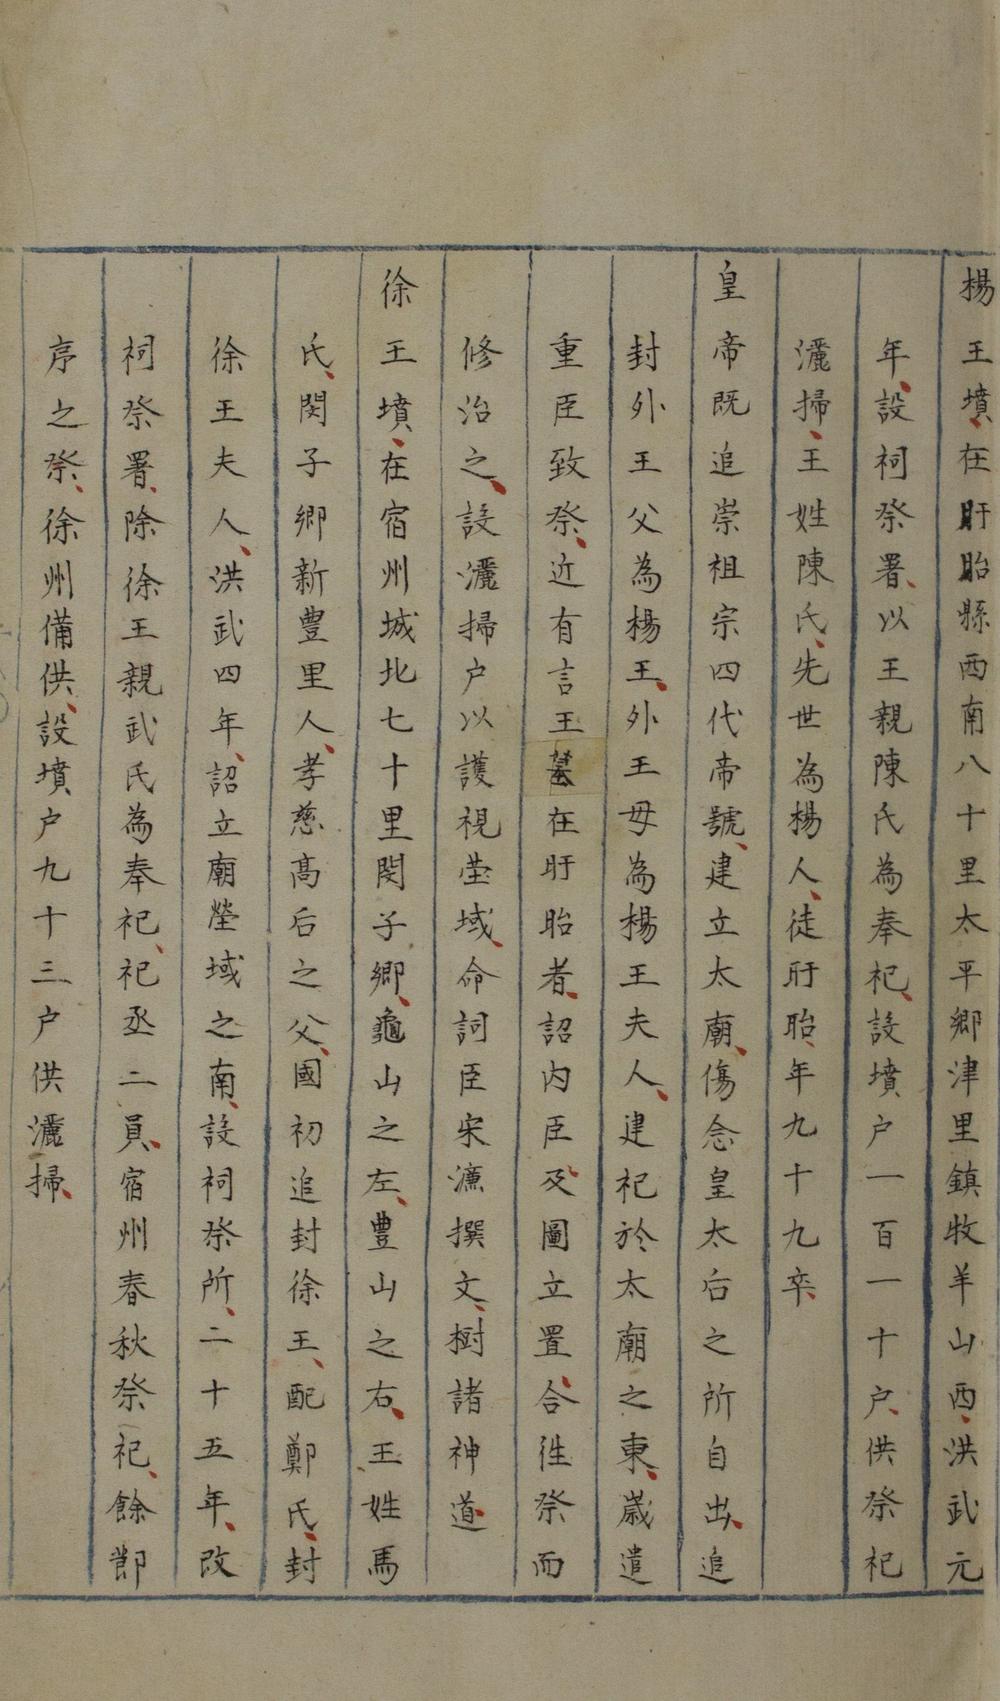 楊王墳、在盱眙縣西南八十里太平鄉津里鎮牧羊山西、洪武元
年、設祠祭署、以王親陳氏為奉祀、設墳户一百一十户、供祭祀
灑掃、王姓陳氏、先世為楊人、徒盱眙、年九十九卒、
皇帝既追崇祖宗四代帝號、建立太廟、傷念皇太后之所自出、追
封外王父為楊王、外王母為楊王夫人、建祀於太廟之東、歲遣
重臣致祭、近有言王墓在盱眙者、詔内臣及圖立置、合徃祭而
修治之、設灑掃户以護視塋域、命詞臣宋濂撰文、樹諸神道、
徐王墳、在宿州城北七十里閔子鄉、龜山之左、豐山之右、王姓馬
氏、閔子鄉新豐里人、孝慈高后之父、國初追封徐王、配鄭氏、封
徐王夫人、洪武四年、詔立廟塋域之南、設祠祭所、二十五年、改
祠祭署、除徐王親武氏為奉祀、祀丞二員、宿州春秋祭祀、餘節
序之祭、徐州備供、設墳户九十三户供灑掃、